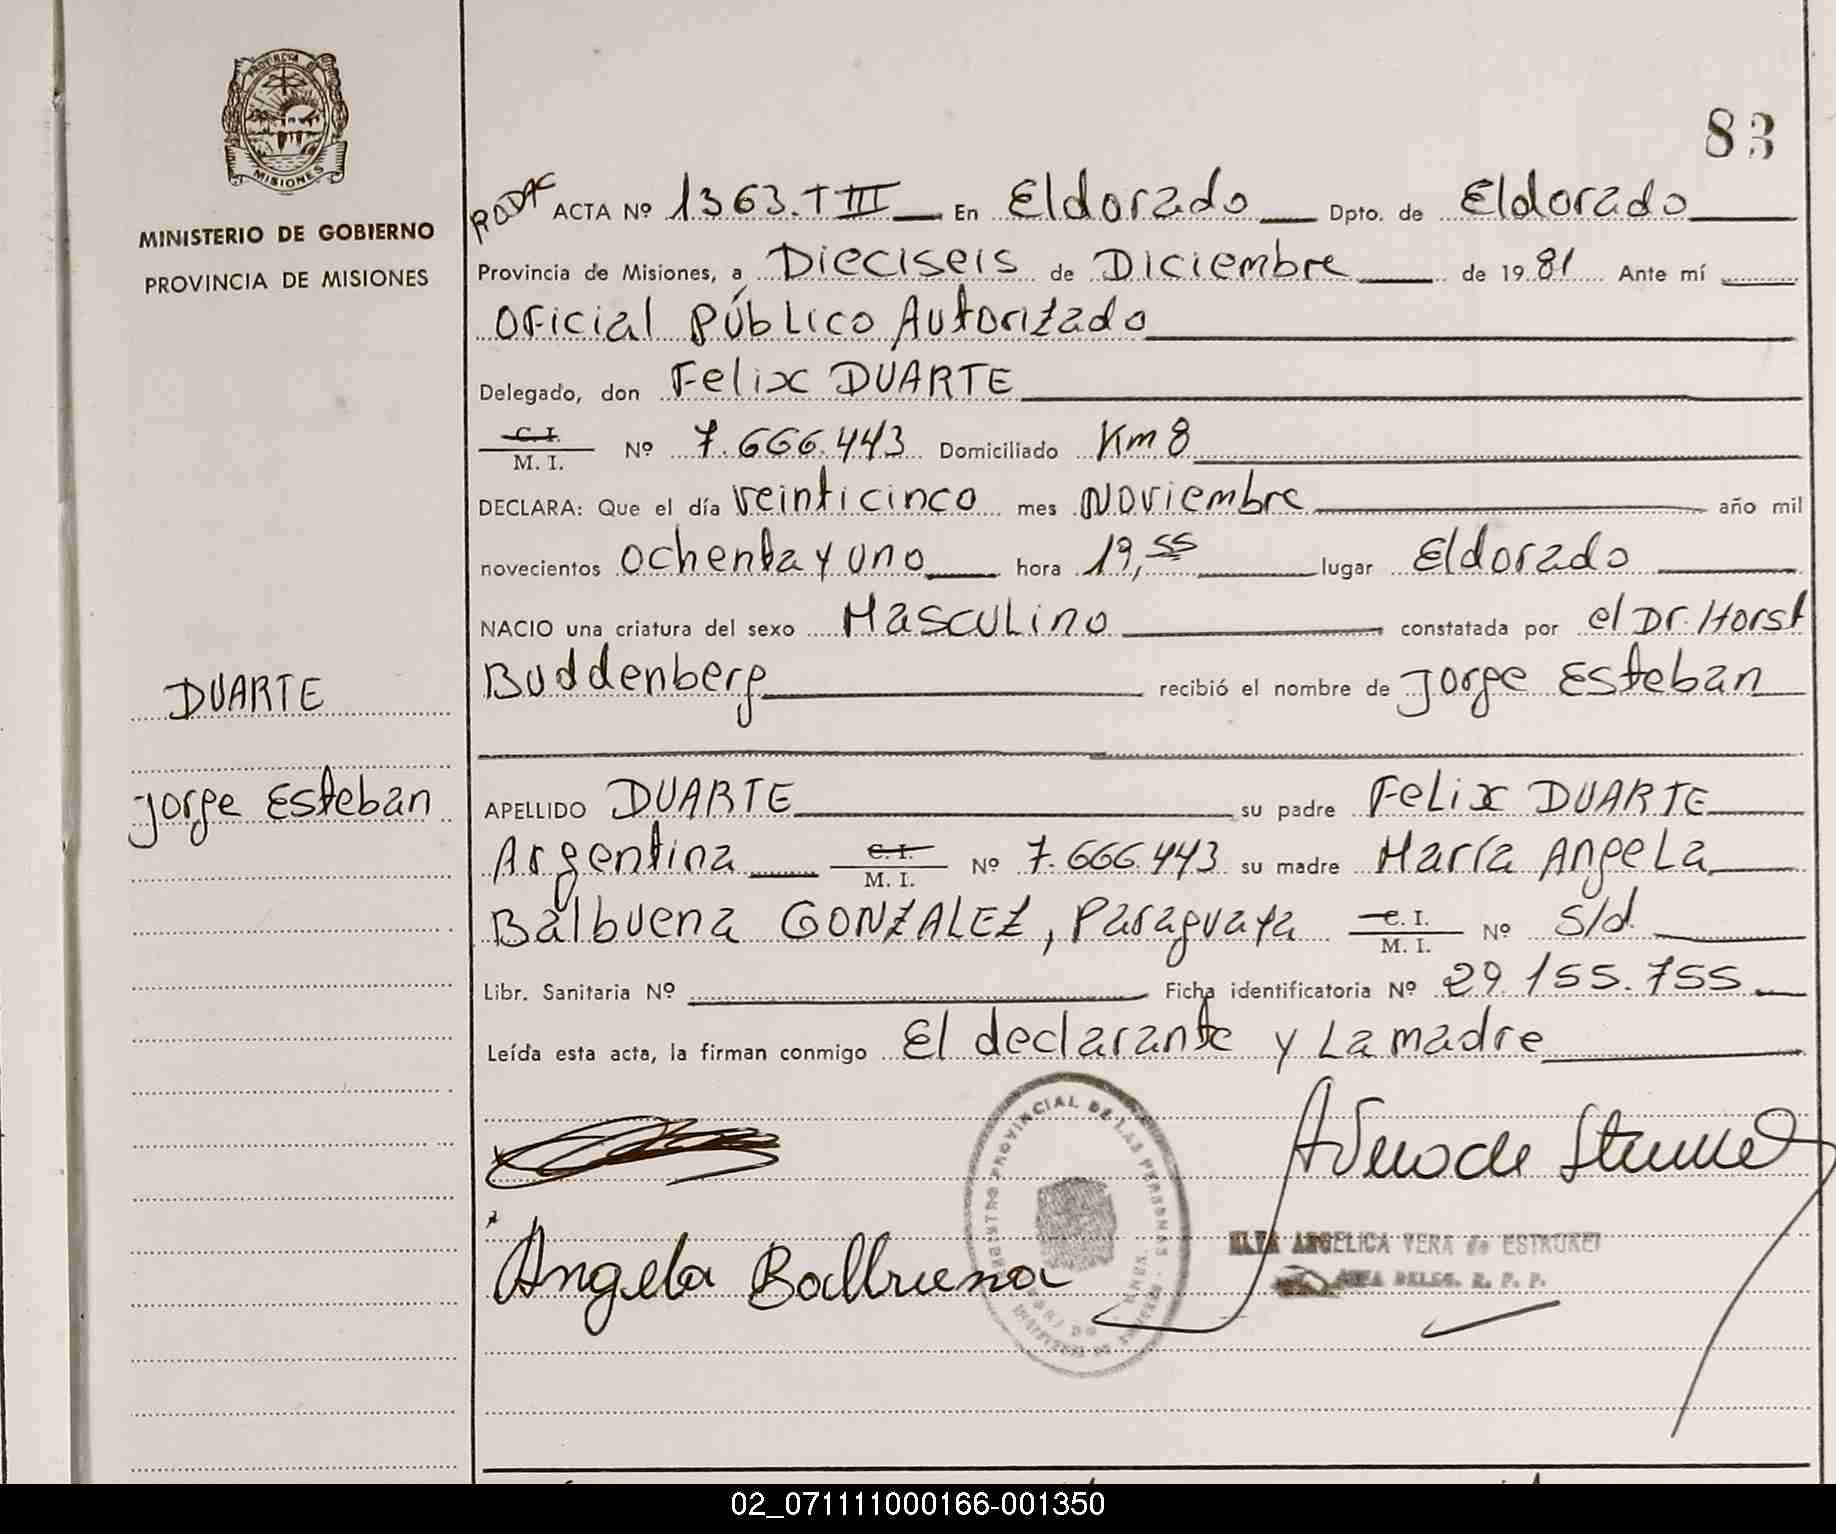 PROVINCIA DE
MISIONES
MINISTERIO DE GOBIERNO
PROVINCIA DE MISIONES
DUARTE
Jorge Esteban
83
ACTA Nº 1363. T III En Eldorado Dpto. de Eldorado
Provincia de Misiones, a Dieciseis de Diciembre de 19 81 Ante mí
Oficial Público Autorizado
Delegado, don Felix DUARTE
C. I.
M. I. Nº 7.666.443 Domiciliado Km 8
DECLARA: Que el día veinticinco mes Noviembre año mil
novecientos ochenta y uno hora 19,55 lugar Eldorado
NACIO una criatura del sexo Masculino constatada por el Dr. Horst
Buddenberg recibió el nombre de Jorge Esteban
APELLIDO DUARTE su padre Felix DUARTE
Argentina C. I. M. I. Nº 7.666.443 su madre María Angela
Balbuena GONZALEZ, Paraguaya C. I. M. I. Nº S/d.
Libr. Sanitaria Nº Ficha identificatoria Nº 29.155.755
Leída esta acta, la firman conmigo El declarante y La madre
REGISTRO PROVINCIAL DE LAS PERSONAS
Angela Balbuena
ANGELICA VERA de
DELEG. R. P. P.
02_071111000166-001350